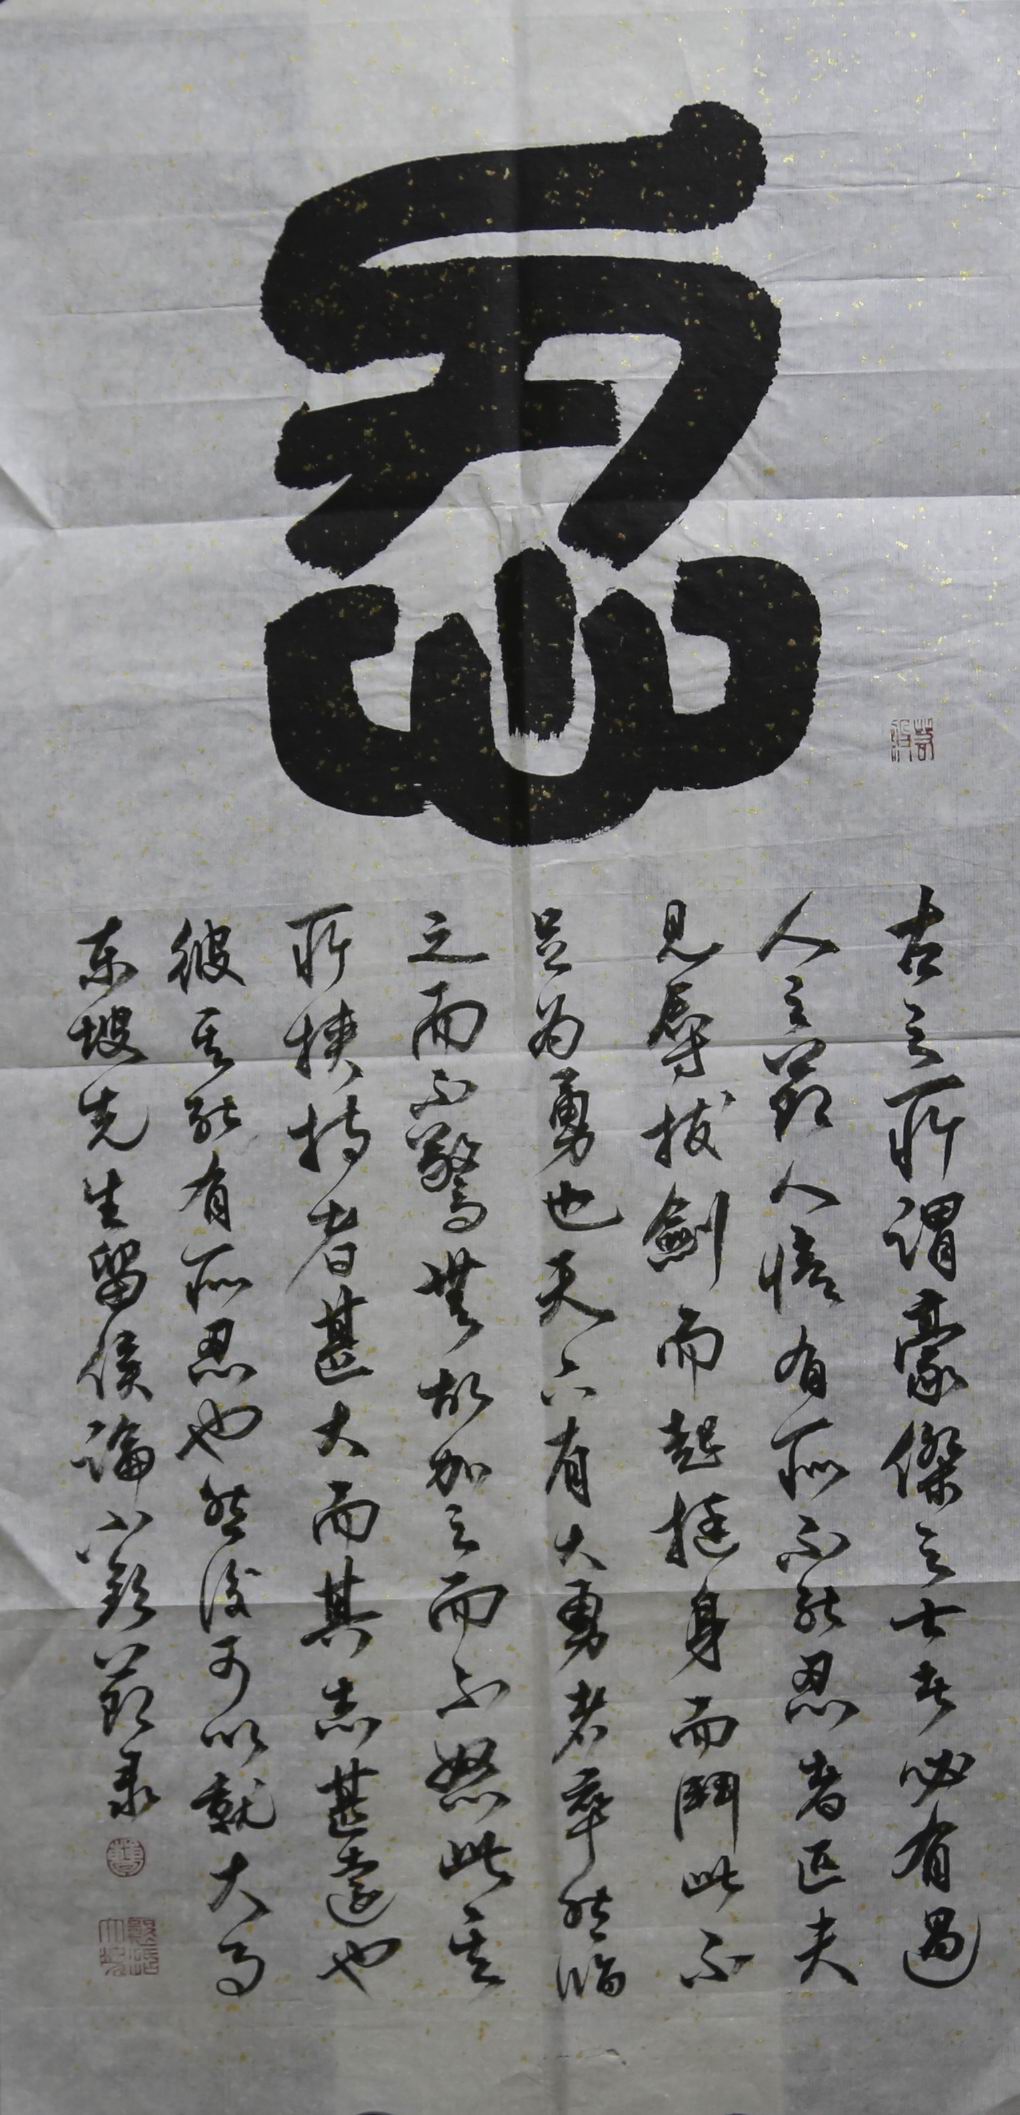 忍
古之所謂豪傑之士者必有過
人之節人情有所不能忍者匹夫
見辱拔劍而起挺身而鬥此不
足为勇也天下有大勇者卒然臨
之而不驚無故加之而不怒此其
所挾持者甚大而其志甚遠也
彼其能有所忍也然後可以就大事
东坡先生留侯論 節录